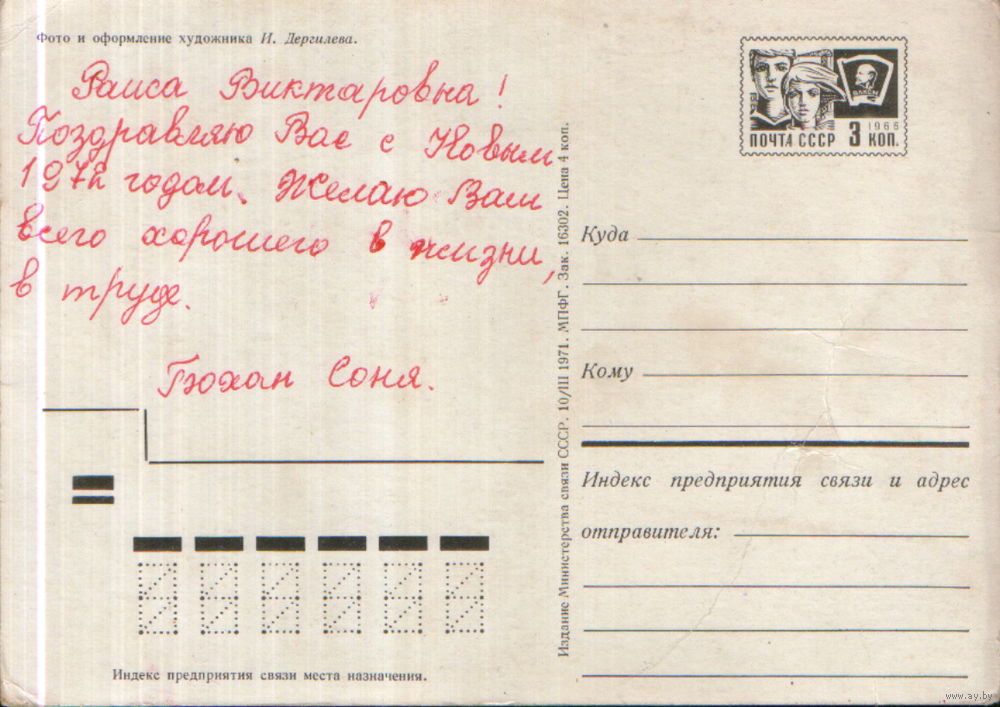 Фото и оформление художника И. Дергилева.
Раиса Виктаровна!
Поздравляю Вас с Новым
1972 годом. Желаю Вам
всего хорошего в жизни,
в труде.
Бюхан Соня.
Индекс предприятия связи места назначения.
Издание Министерства связи СССР. 10/III 1971. МПФГ. Зак. 16302. Цена 4 коп.
ВЛКСМ
1966
ПОЧТА СССР 3 КОП.
Куда
Кому
Индекс предприятия связи и адрес
отправителя:
www.ay.by